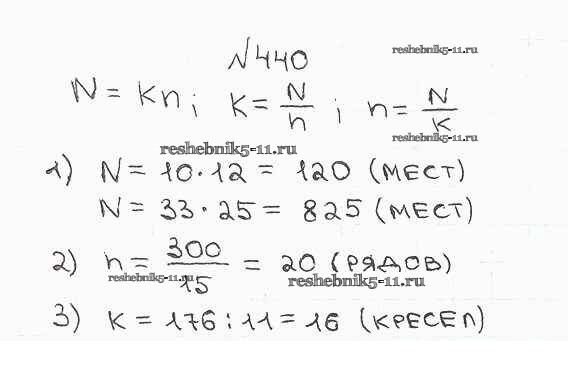 №440
reshebnik5-11.ru
N = kn; k = N/n; n = N/k
reshebnik5-11.ru
reshebnik5-11.ru
1) N = 10·12 = 120 (МЕСТ)
N = 33·25 = 825 (МЕСТ)
2) n = 300/15 = 20 (РЯДОВ)
reshebnik5-11.ru
reshebnik5-11.ru
3) k = 176:11 = 16 (КРЕСЕЛ)